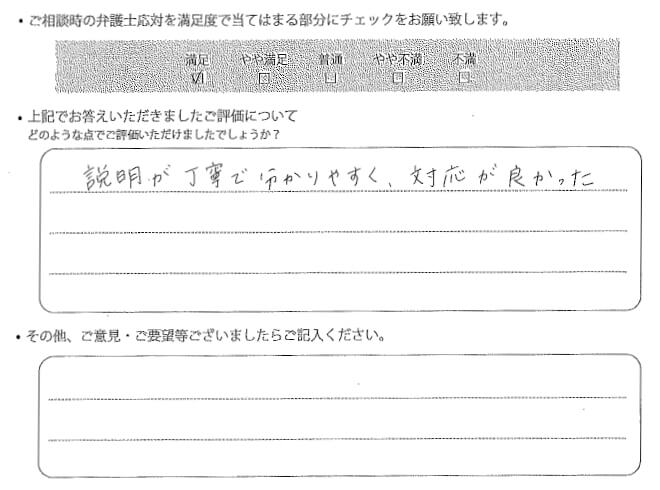 ・ご相談時の弁護士応対を満足度で当てはまる部分にチェックをお願い致します。
満足 やや満足 普通 やや不満 不満
☑ □ □ □ □
・上記でお答えいただきましたご評価について
どのような点でご評価いただけましたでしょうか？
説明が丁寧で分かりやすく、対応が良かった
・その他、ご意見・ご要望等ございましたらご記入ください。